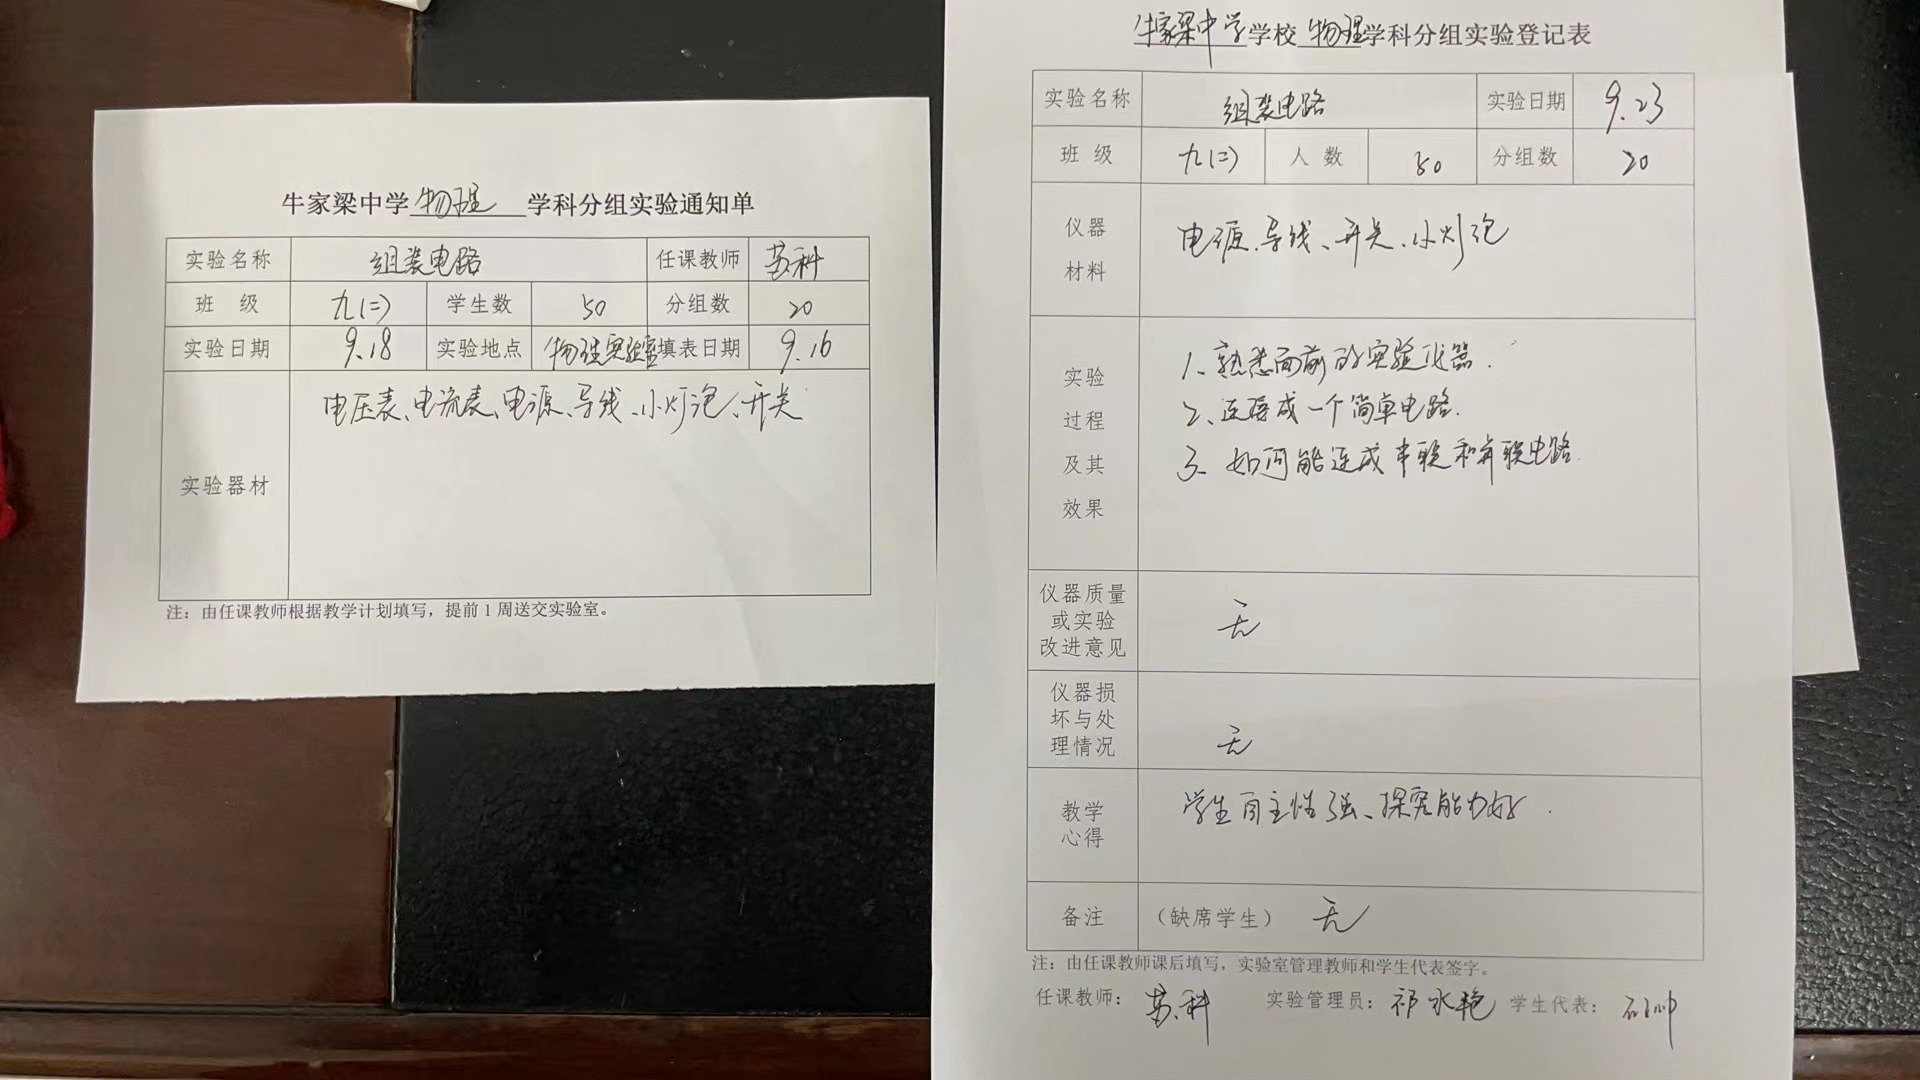 牛家梁中学物理 学科分组实验通知单
实验名称 组装电路 任课教师 苏科
班 级 九(二) 学生数 50 分组数 20
实验日期 9.18 实验地点 物理实验室 填表日期 9.16
实验器材 电压表、电流表、电源、导线、小灯泡、开关
注：由任课教师根据教学计划填写，提前1周送交实验室。
牛家梁中学学校物理学科分组实验登记表
实验名称 组装电路 实验日期 9.23
班 级 九(二) 人 数 50 分组数 20
仪器
材料
电源、导线、开关、小灯泡
实验
过程
及其
效果
1、熟悉面前的实验仪器.
2、连接成一个简单电路.
3、如何能连成串联和并联电路.
仪器质量
或实验
改进意见
无
仪器损
坏与处
理情况
无
教学
心得
学生自主性强、探究能力好.
备注 （缺席学生） 无
注：由任课教师课后填写，实验室管理教师和学生代表签字。
任课教师： 苏科 实验管理员： 祁水艳 学生代表：